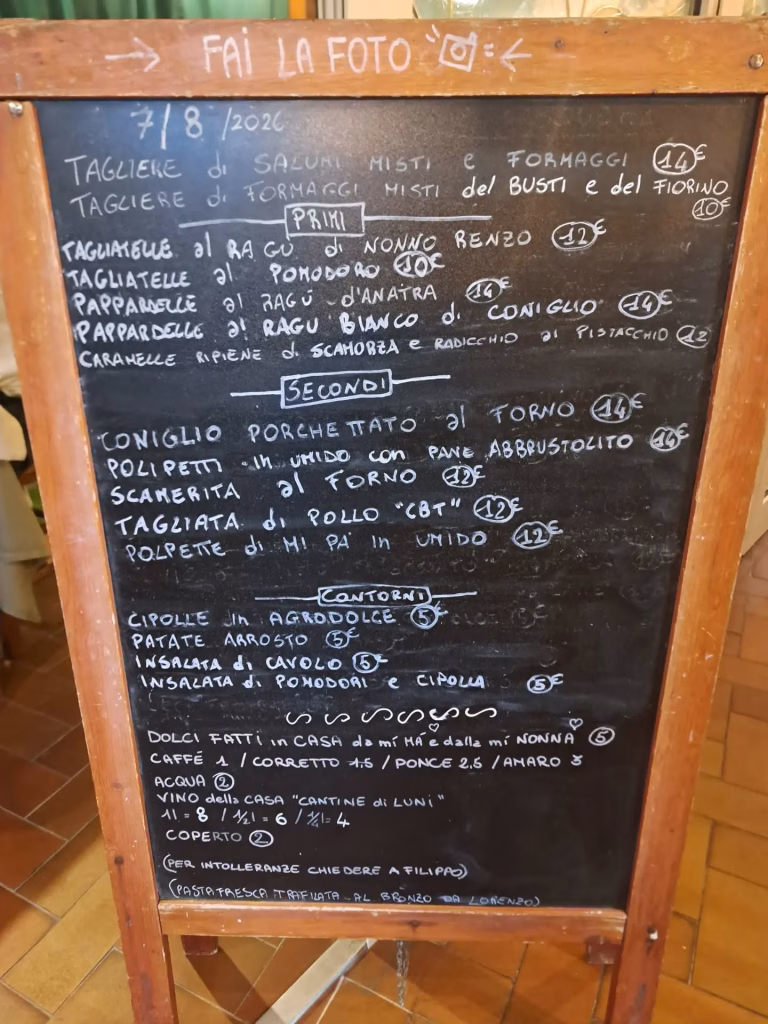 → FAI LA FOTO ←
7/8/2026
TAGLIERE di SALUMI MISTI e FORMAGGI 14€
TAGLIERE di FORMAGGI MISTI del BUSTI e del FIORINO
10€
PRIMI
TAGLIATELLE al RAGÙ di NONNO RENZO 12€
TAGLIATELLE al POMODORO 10€
PAPPARDELLE al RAGÚ d'ANATRA 14€
PAPPARDELLE al RAGU BIANCO di CONIGLIO 14€
CARAMELLE RIPIENE di SCAMORZA e RADICCHIO al PISTACCHIO 12
SECONDI
CONIGLIO PORCHETTATO al FORNO 14€
POLIPETTI in UMIDO con PANE ABBRUSTOLITO 14€
SCAMERITA al FORNO 12€
TAGLIATA di POLLO "CBT" 12€
POLPETTE di MI PA' in UMIDO 12€
CONTORNI
CIPOLLE in AGRODOLCE 5€
PATATE ARROSTO 5€
INSALATA di CAVOLO 5€
INSALATA di POMODORI e CIPOLLA 5€
DOLCI FATTI in CASA da mi MÀ e dalla mi NONNA 5
CAFFÉ 1 / CORRETTO 1.5 / PONCE 2.5 / AMARO 3
ACQUA 2
VINO della CASA "CANTINE di LUNI"
1l = 8 / 1/2l = 6 / 1/4l = 4
COPERTO 2
(PER INTOLLERANZE CHIEDERE A FILIPPO)
(PASTA FRESCA TRAFILATA AL BRONZO DA LORENZO)